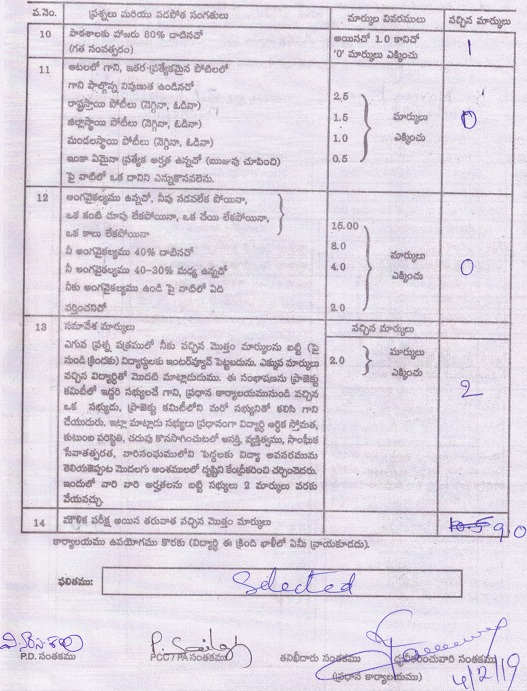 వ.నెం. ప్రశ్నలు మరియు పడపోత సంగతులు మార్కుల వివరములు వచ్చిన మార్కులు
10 పాఠశాలకు హాజరు 80% దాటినచో అయినచో 1.0 కానిచో 1
(గత సంవత్సరం) '0' మార్కులు ఎక్కించు
11 ఆటలలో గాని, ఇతర ప్రత్యేకమైన పోటీలలో
గాని పాల్గొన్న నిపుణుత ఉండినచో
రాష్ట్రస్థాయి పోటీలు (నెగ్గినా, ఓడినా) 2.5
జిల్లాస్థాయి పోటీలు (నెగ్గినా, ఓడినా) 1.5 మార్కులు 0
మండలస్థాయి పోటీలు (నెగ్గినా, ఓడినా) 1.0 ఎక్కించు
ఇంకా ఏమైనా ప్రత్యేక అర్హత ఉన్నచో (ఋజువు చూపించి) 0.5
పై వాటిలో ఒక దానిని ఎన్నుకొనవలెను.
12 అంగవైకల్యము ఉన్నచో, నీవు నడవలేక పోయినా,
ఒక కంటి చూపు లేకపోయినా, ఒక చేయి లేకపోయినా, 15.00
ఒక కాలు లేకపోయినా 8.0
నీ అంగవైకల్యము 40% దాటినచో 4.0 మార్కులు 0
నీ అంగవైకల్యము 40-30% మధ్య ఉన్నచో ఎక్కించు
నీకు అంగవైకల్యము ఉండి పై వాటిలో ఏది
వర్తించనిచో 2.0
13 సమావేశ మార్కులు వచ్చిన మార్కులు
ఎగువ ప్రశ్న పత్రములో నీకు వచ్చిన మొత్తం మార్కులను బట్టి (పై
నుండి క్రిందకు) విద్యార్థులకు ఇంటర్వ్యూన్ పెట్టబడును. ఎక్కువ మార్కులు 2.0 మార్కులు
వచ్చిన విద్యార్థితో మొదట మాట్లాడుదుము. ఈ సంభాషణను ప్రాజెక్టు ఎక్కించు
కమిటీలో ఇద్దరి సభ్యులచే గాని, ప్రధాన కార్యాలయమునుండి వచ్చిన 2
ఒక సభ్యుడు, ప్రాజెక్టు కమిటీలోని మరో సభ్యునితో కలిసి గాని
చేయుదురు. ఇట్లా మాట్లాడు సభ్యులు ప్రధానంగా విద్యార్థి ఆర్థిక స్తోమత,
కుటుంబ పరిస్థితి, చదువు కొనసాగించుటలో ఆసక్తి, వ్యక్తిత్వము, సాంఘీక
సేవాతత్పరత, వారిసంఘములోని పెద్దలకు విద్యా అవసరమును
తెలియజెప్పుట మొదలగు అంశములలో దృష్టిని కేంద్రీకరించి చర్చించెదరు.
ఇందులో వారి వారి అర్హతలను బట్టి సభ్యులు 2 మార్కులు వరకు
వేయవచ్చు.
14 మౌఖిక పరీక్ష అయిన తరువాత వచ్చిన మొత్తం మార్కులు 9.0
కార్యాలయము ఉపయోగము కొరకు (విద్యార్థి ఈ క్రింది ఖాళీలో ఏమీ వ్రాయకూడదు).
ఫలితము: Selected
P.D. సంతకము PCC / PA సంతకము తనిఖీదారు సంతకము ధృవీకరించువారి సంతకము
(ప్రధాన కార్యాలయము) 4/2/19